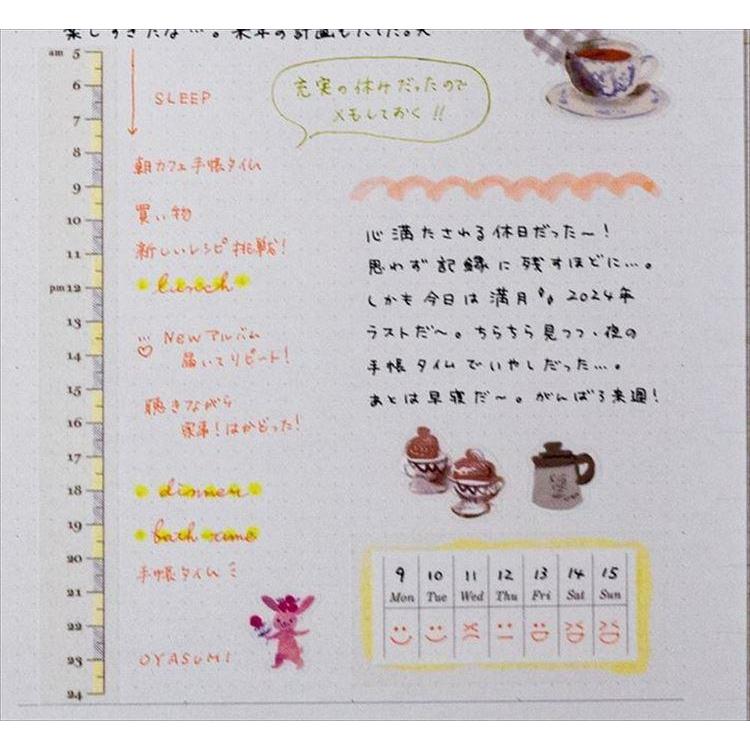 楽しすぎたな…。来年の計画もたてた。
am 5
6
7
8
9
10
11
pm 12
13
14
15
16
17
18
19
20
21
22
23
24
SLEEP
朝カフェ手帳タイム
買い物
新しいレシピ挑戦!
lunch
New アルバム
届いてリピート!
聴きながら
家事!はかどった!
dinner
bath time
手帳タイム
OYASUMI
充実の休みだったので
メモしておく!!
心満たされる休日だった〜!
思わず記録に残すほどに…。
しかも今日は満月 2024年
ラストだ〜。ちらちら見つつ、夜の
手帳タイムでいやしだった…。
あとは早寝だ〜。がんばろ来週!
9 10 11 12 13 14 15
Mon Tue Wed Thu Fri Sat Sun